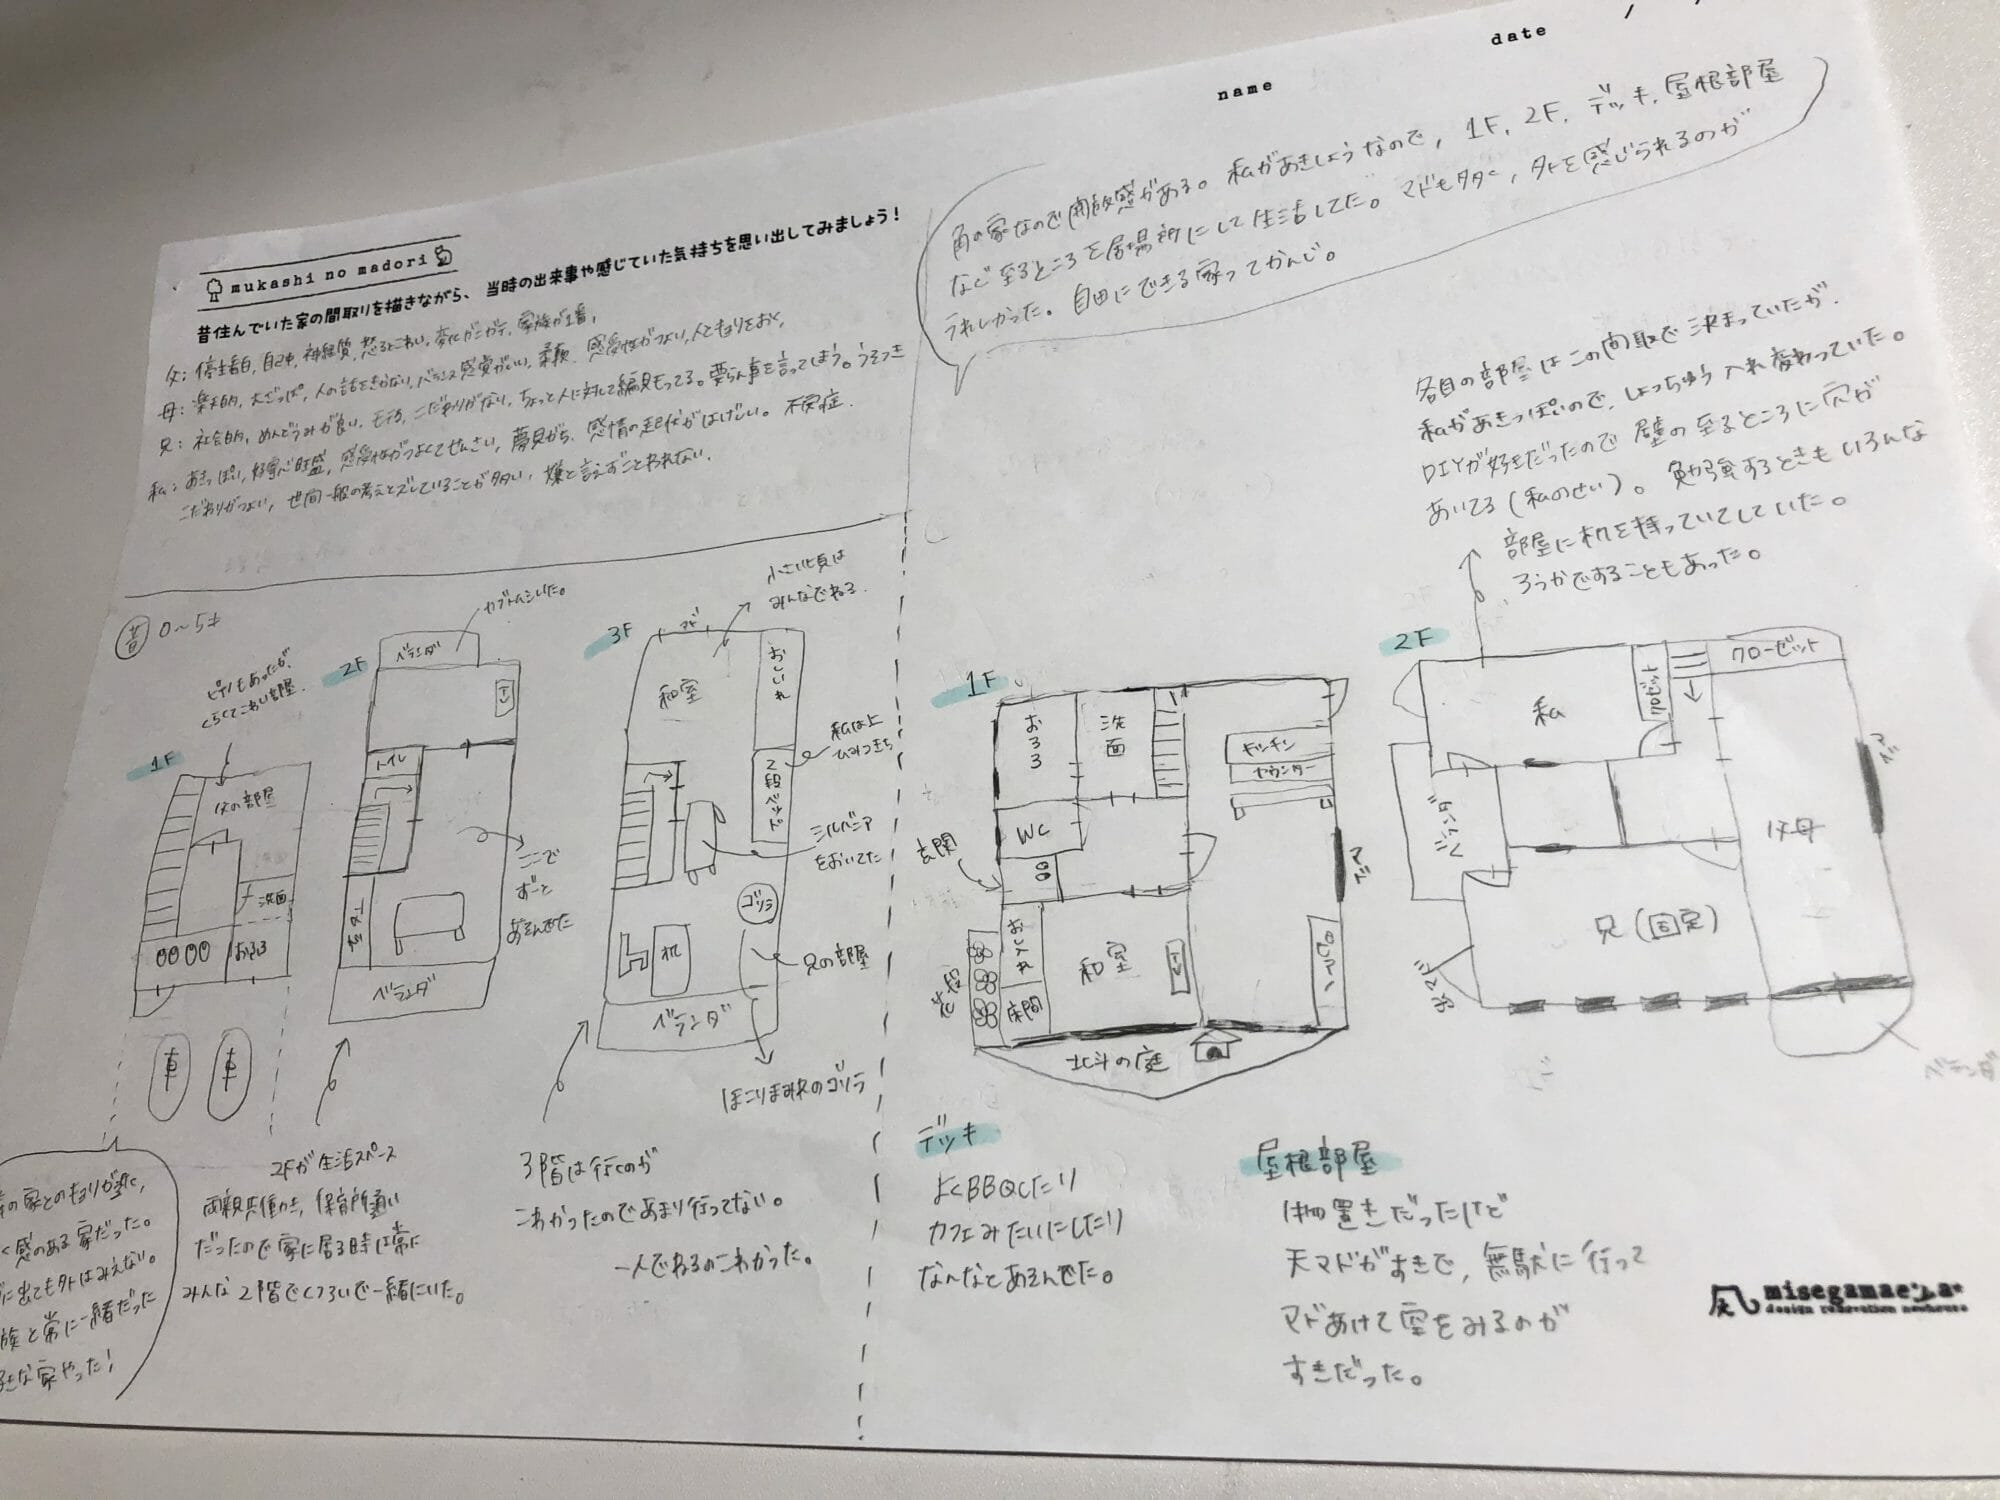 name
date
mukashi no madori
昔住んでいた家の間取りを描きながら、当時の出来事や感じていた気持ちを思い出してみましょう!
自己中, 神経質, 怒るとこわい, 変化がニガテ, 家族が1番,
母: 楽天的, 大ざっぱ, 人の話をきかない, バランス感覚がいい, 柔軟, 感受性がつよい,
兄: 社会的, めんどうみが良い, モテる, こだわりがない, ちょっと人に対して偏見もってる。要らん事を言ってしまう。うそつき
私: あきっぽい, 好奇心旺盛, 感受性がつよくてせんさい, 夢見がち, 感情の起伏がはげしい。不安症.
こだわりがつよい, 世間一般の考えとズレていることが多い, 嫌と言えずことわれない.
角の家なので開放感がある。私があきしょうなので, 1F, 2F, デッキ, 屋根部屋
など至るところを居場所にして生活してた。マドも多く, 外を感じられるのが
うれしかった。自由にできる家ってかんじ。
各自の部屋はこの間取で決まっていたが.
私があきっぽいので, しょっちゅう入れ変わっていた。
DIYが好きだったので壁の至るところに穴が
あいてる(私のせい)。勉強するときもいろんな
部屋に机を持っていてしていた。
ろうかですることもあった。
昔 0〜5才
ピアノもあったが,
くらくてこわい部屋.
1F
父の部屋
洗面
おふろ
車
車
カブトムシいた。
2F
ベランダ
TV
トイレ
ここで
ずーと
あそんでた
ベランダ
小さい頃は
みんなでねる.
3F
マド
和室
おしいれ
私は上
ひみつきち
2段ベッド
シルバニア
をおいてた
ゴリラ
机
兄の部屋
ベランダ
ほこりまみれのゴリラ
1F
おふろ
洗面
キッチン
カウンター
WC
玄関
マド
おしいれ
和室
TV
花だん
床間
北斗の庭
2F
クローゼット
私
クローゼット
マド
ベランダ
父母
兄(固定)
出マド
ベランダ
の家とのきょりが近く,
感のある家だった。
に出ても外はみえない。
族と常に一緒だった
な家やった!
2Fが生活スペース
両親共働き, 保育所通い
だったので家に居る時は常に
みんな2階でくつろいで一緒にいた。
3階は行くのが
こわかったのであまり行ってない。
一人でねるのこわかった。
デッキ
よくBBQしたり
カフェみたいにしたり
なんなとあそんでた。
屋根部屋
物置きだったけど
天マドがすきで, 無駄に行って
マドあけて空をみるのが
すきだった。
misegamaeya
design renovation newhouse